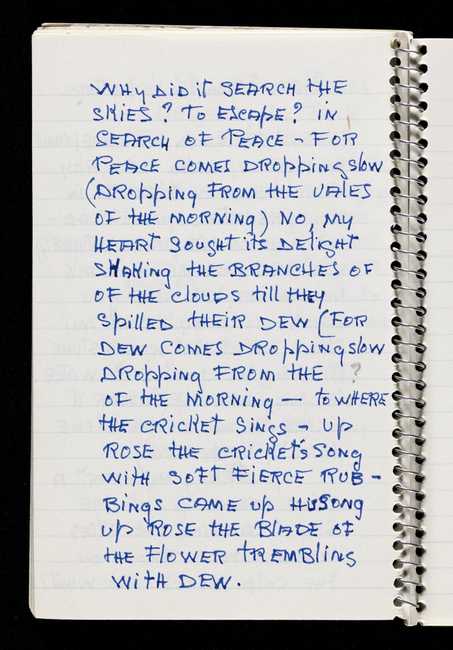 WHY DID IT SEARCH THE
SKIES? TO ESCAPE? IN
SEARCH OF PEACE – FOR
PEACE COMES DROPPING SLOW
(DROPPING FROM THE VALES
OF THE MORNING) NO, MY
HEART SOUGHT ITS DELIGHT
SHAKING THE BRANCHES OF
OF THE CLOUDS TILL THEY
SPILLED THEIR DEW (FOR
DEW COMES DROPPING SLOW
DROPPING FROM THE ?
OF THE MORNING — TO WHERE
THE CRICKET SINGS – UP
ROSE THE CRICKET'S SONG
WITH SOFT FIERCE RUB-
BINGS CAME UP SONG
UP ROSE THE BLADE OF
THE FLOWER TREMBLING
WITH DEW.